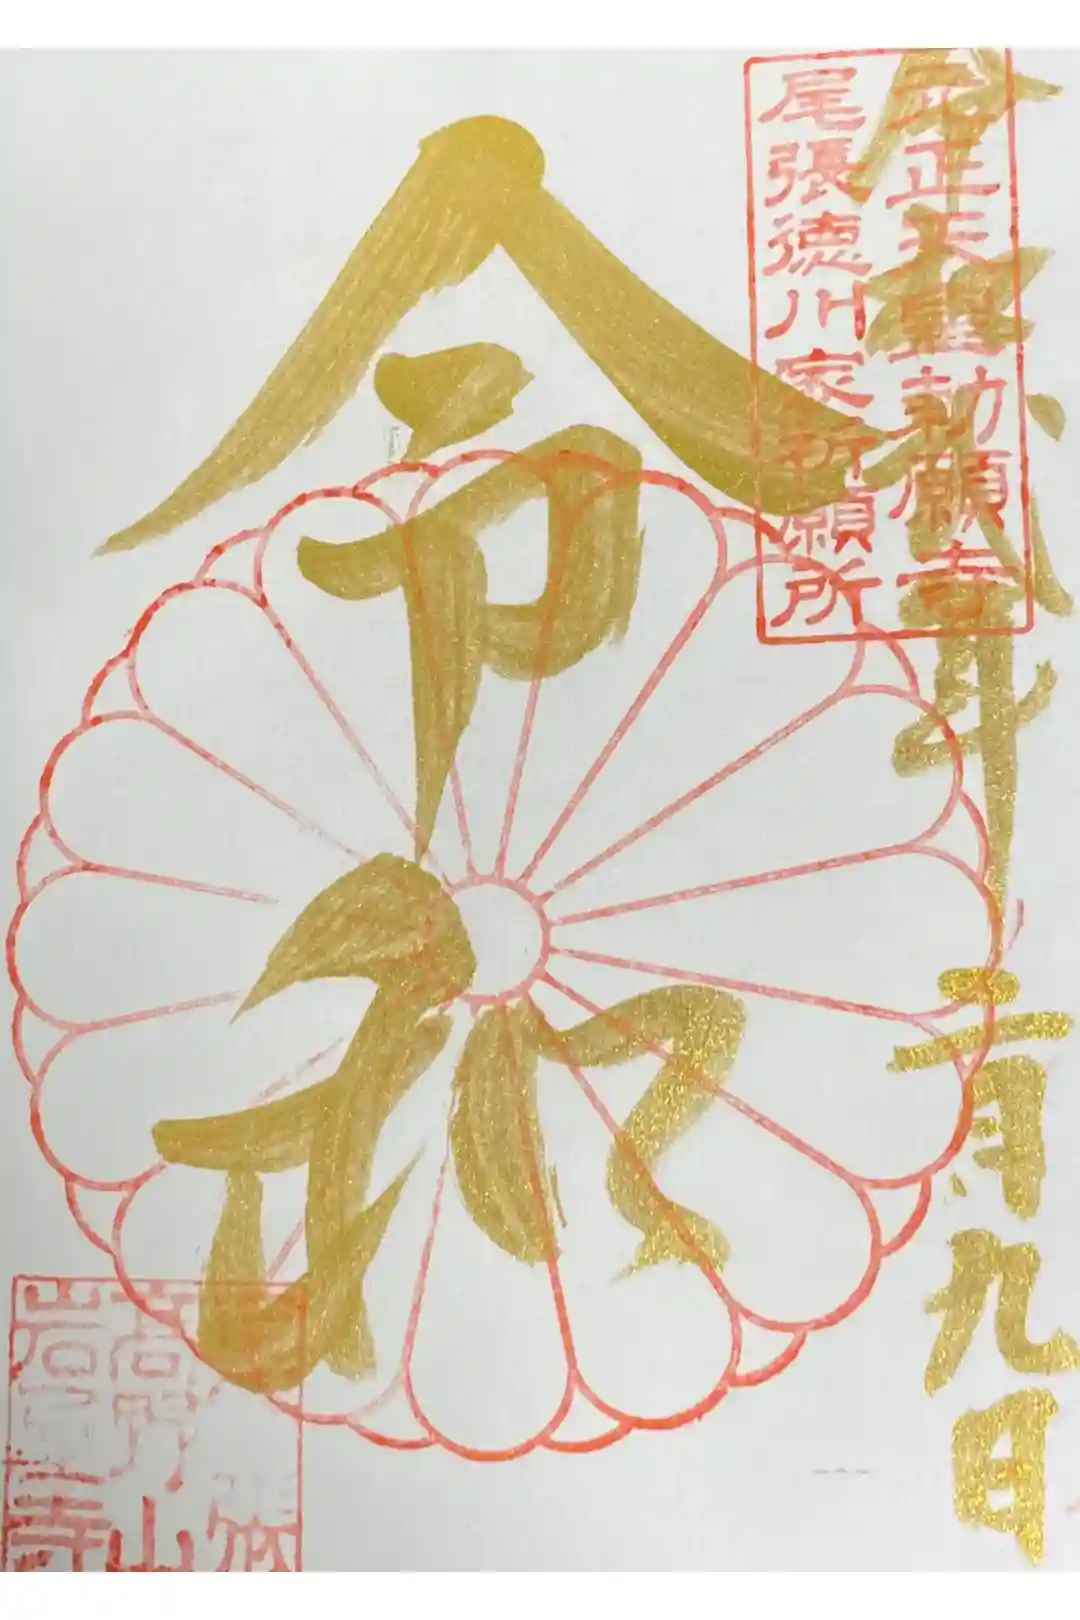 令和弐年 二月九日
元正天皇勅願寺
尾張徳川家祈願所
令和
高野山
岩屋寺